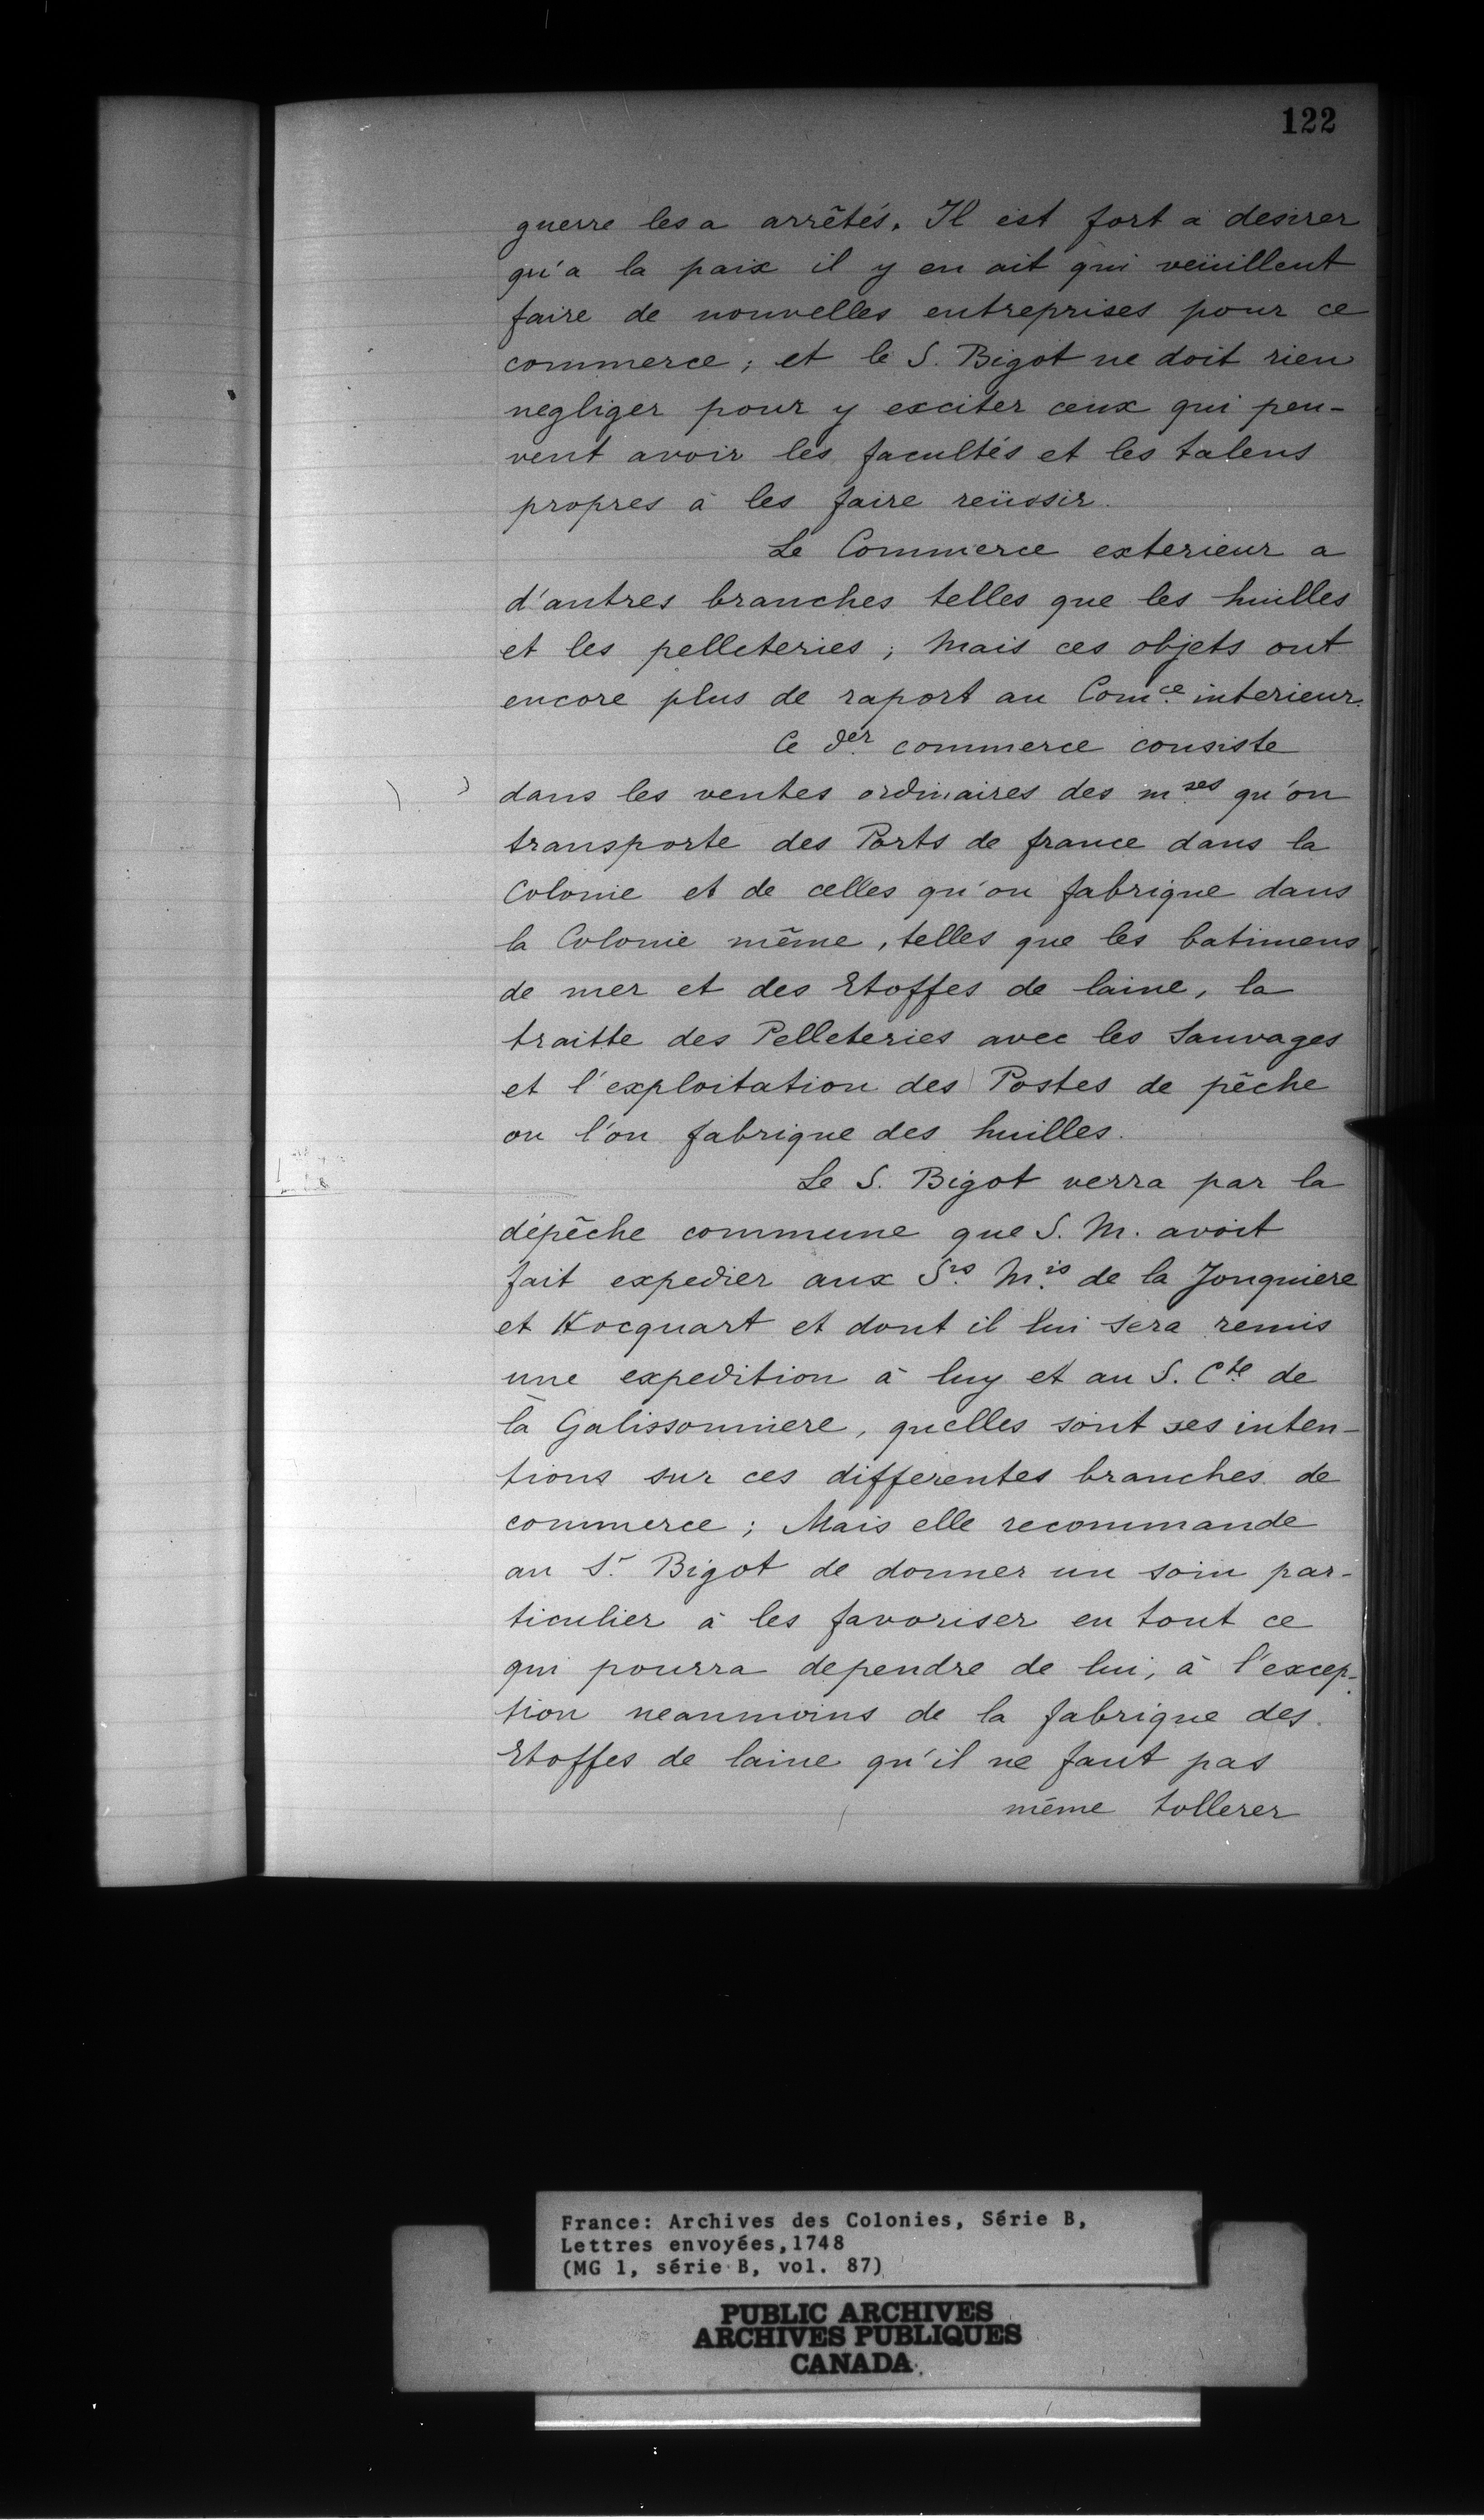 122
guerre les a arrêtés. Il est fort a desirer
qu'a la paix il y en ait qui veüillent
faire de nouvelles entreprises pour ce
commerce ; et le S. Bigot ne doit rien
negliger pour y exciter ceux qui peu-
vent avoir les facultés et les talens
propres à les faire reüssir.
Le Commerce exterieur a
d'autres branches telles que les huilles
et les pelleteries ; Mais ces objets ont
encore plus de raport au Comce. interieur.
Ce der. commerce consiste
dans les ventes ordinaires des mses qu'on
transporte des Ports de france dans la
Colonie et de celles qu'on fabrique dans
la Colonie même, telles que les batimens
de mer et des Etoffes de laine, la
traitte des Pelleteries avec les Sauvages
et l'exploitation des Postes de pêche
ou l'on fabrique des huilles.
Le S. Bigot verra par la
dépêche commune que S. M. avoit
fait expedier aux Srs. Mis. de la Jonquiere
et Hocquart et dont il lui sera remis
une expedition à luy et au S. Cte. de
la Galissonniere, quelles sont ses inten-
tions sur ces differentes branches de
commerce ; Mais elle recommande
au Sr. Bigot de donner un soin par-
ticulier à les favoriser en tout ce
qui pourra dependre de lui, à l'excep-
tion neanmoins de la fabrique des
Etoffes de laine qu'il ne faut pas
même tollerer
France: Archives des Colonies, Série B,
Lettres envoyées,1748
(MG 1, série B, vol. 87)
PUBLIC ARCHIVES
ARCHIVES PUBLIQUES
CANADA